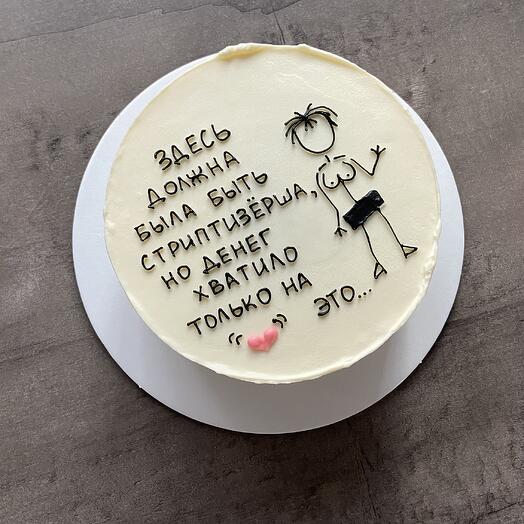 ЗДЕСЬ
ДОЛЖНА
БЫЛА БЫТЬ
СТРИПТИЗЁРША,
НО ДЕНЕГ
ХВАТИЛО
ТОЛЬКО НА
ЭТО...